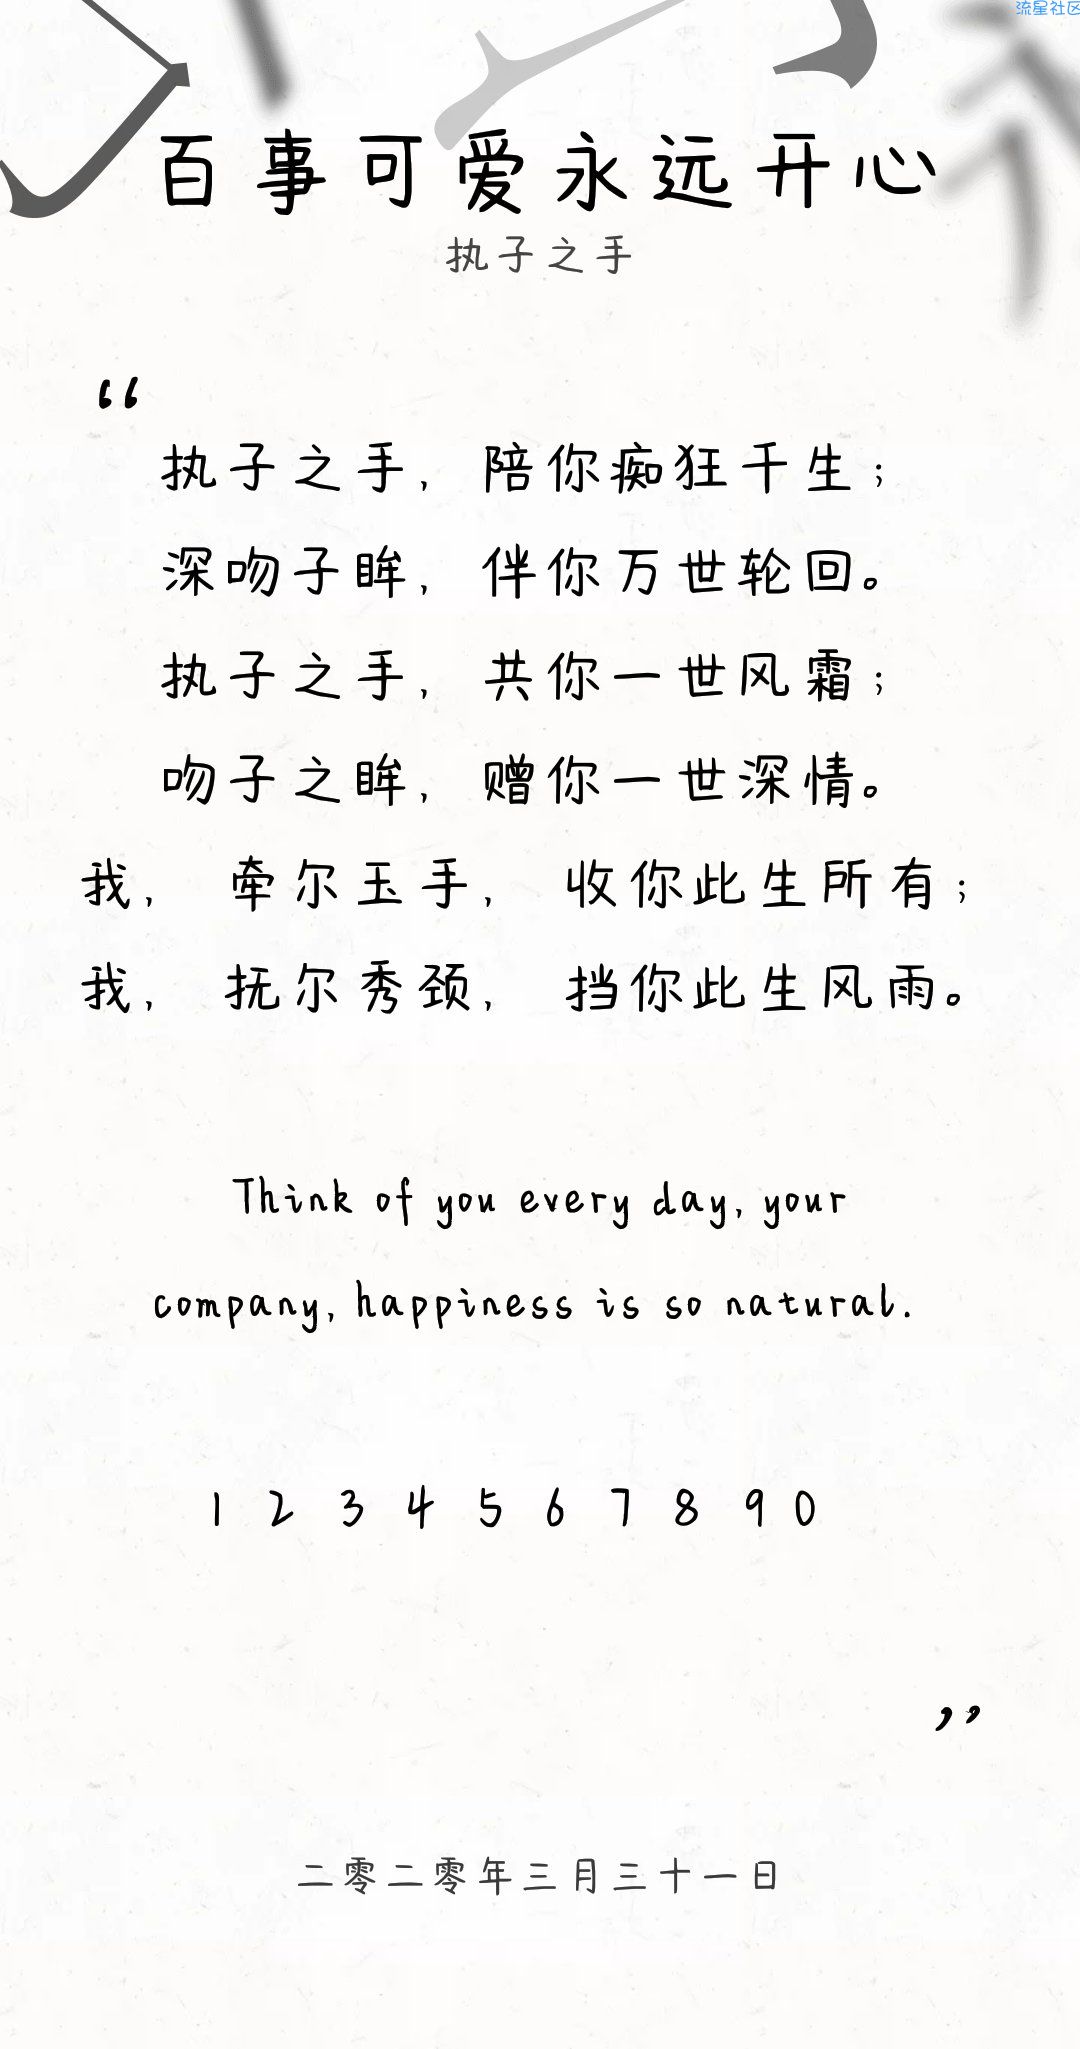 流星社区
百事可爱永远开心
执子之手
“
执子之手，陪你痴狂千生；
深吻子眸，伴你万世轮回。
执子之手，共你一世风霜；
吻子之眸，赠你一世深情。
我， 牵尔玉手， 收你此生所有；
我， 抚尔秀颈， 挡你此生风雨。
Think of you every day, your
company, happiness is so natural.
1 2 3 4 5 6 7 8 9 0
”
二零二零年三月三十一日